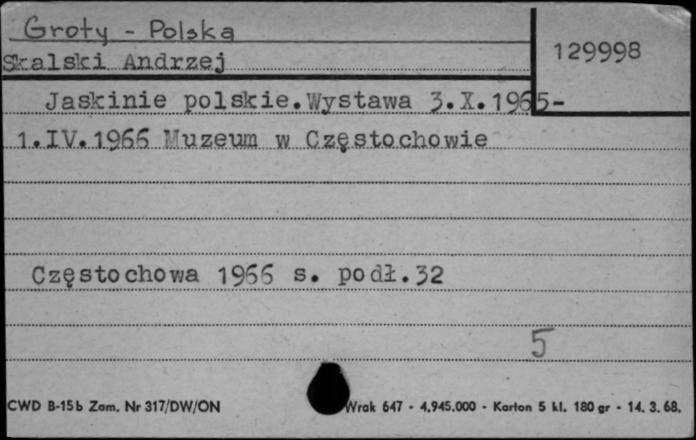 Groty - Polska
129998
Skalski Andrzej
Jaskinie polskie.Wystawa 3.X.1965-
1.IV.1966 Muzeum w Częstochowie
Częstochowa 1966 s. podł.32
5
CWD B-15b Zam. Nr 317/DW/ON Wrak 647 - 4.945.000 - Karton 5 kl. 180 gr - 14. 3. 68.